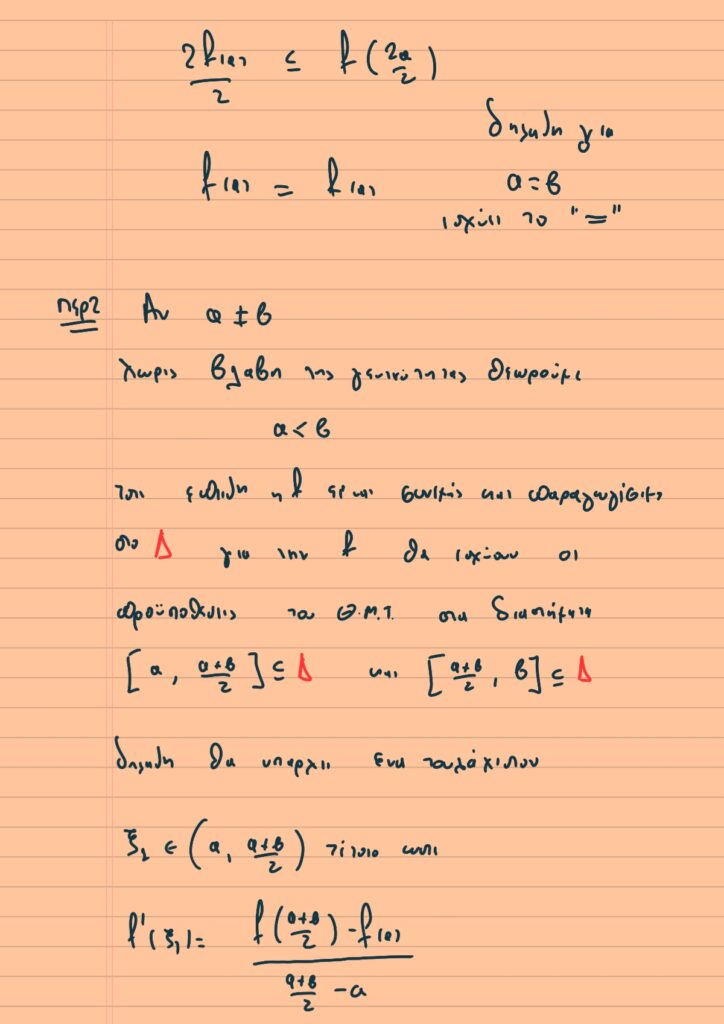 2f(α)/2 ≤ f(2α/2)
δηλαδη για
f(α) = f(α) α = β
ισχύει το "="
περ2 Αν α ≠ β
Χωρις βλαβη της γενικότητας θεωρούμε
α < β
τοτε επειδη η f ειναι συνεχής και παραγωγίσιμη
στο Δ για την f θα ισχύουν οι
προϋποθεσεις του Θ.Μ.Τ. στα διαστήματα
[α, α+β/2] ⊆ Δ και [α+β/2, β] ⊆ Δ
δηλαδη θα υπαρχει ενα τουλάχιστον
ξ₁ ∈ (α, α+β/2) τέτοιο ωστε
f'(ξ₁) = f(α+β/2) - f(α)
α+β/2 - α